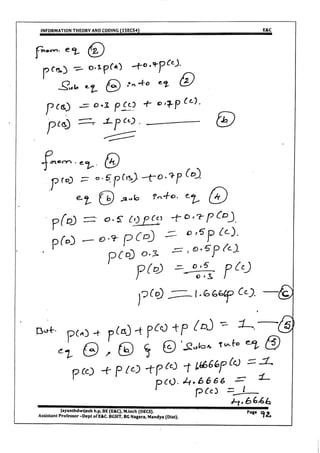 INFORMATION THEORY AND CODING (15EC54) E&C
from. eq (2)
p(B) = 0.3p(A) + 0.7p(C).
Sub eq (a) into eq (2)
p(B) = 0.3 p(C) + 0.7p(C).
p(B) = 1p(C). (b)
from. eq. (4)
p(D) = 0.5p(B) + 0.7p(D)
eq (b) sub into. eq (4)
p(D) = 0.5 (1)p(C) + 0.7p(D).
p(D) - 0.7p(D) = 0.5p(C).
p(D) 0.3 = 0.5p(C)
p(D) = 0.5 / 0.3 p(C)
p(D) = 1.6666p(C). (c)
But. p(A) + p(B) + p(C) + p(D) = 1. (5)
eq (a), (b) & (c) Subs into eq (5)
p(C) + p(C) + p(C) + 1.6666p(C) = 1.
p(C). 4.6666 = 1
p(C) = 1
4.6666
Jayanthdwijesh h.p, BE (E&C), M.tech (DECS).
Assistant Professor –Dept of E&C. BGSIT, BG Nagara, Mandya (Dist). Page 92